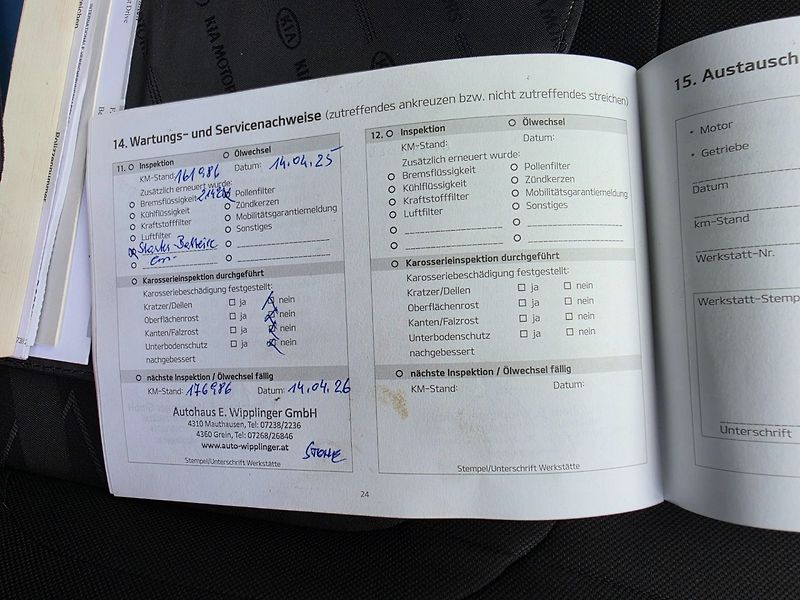 KIA MOTORS
14. Wartungs- und Servicenachweise (zutreffendes ankreuzen bzw. nicht zutreffendes streichen)
11. Inspektion Ölwechsel
KM-Stand: 161986 Datum: 14.04.25
Zusätzlich erneuert wurde:
Bremsflüssigkeit Pollenfilter
Kühlflüssigkeit Zündkerzen
Kraftstofffilter Mobilitätsgarantiemeldung
Luftfilter Sonstiges
Karosserieinspektion durchgeführt
Karosseriebeschädigung festgestellt:
Kratzer/Dellen ja nein
Oberflächenrost ja nein
Kanten/Falzrost ja nein
Unterbodenschutz ja nein
nachgebessert
nächste Inspektion / Ölwechsel fällig
KM-Stand: 176986 Datum: 14.04.26
Autohaus E. Wipplinger GmbH
4310 Mauthausen, Tel: 07238/2236
4360 Grein, Tel: 07268/26846
www.auto-wipplinger.at
Stempel/Unterschrift Werkstätte
12. Inspektion Ölwechsel
KM-Stand: Datum:
Zusätzlich erneuert wurde:
Bremsflüssigkeit Pollenfilter
Kühlflüssigkeit Zündkerzen
Kraftstofffilter Mobilitätsgarantiemeldung
Luftfilter Sonstiges
Karosserieinspektion durchgeführt
Karosseriebeschädigung festgestellt:
Kratzer/Dellen ja nein
Oberflächenrost ja nein
Kanten/Falzrost ja nein
Unterbodenschutz ja nein
nachgebessert
nächste Inspektion / Ölwechsel fällig
KM-Stand: Datum:
Stempel/Unterschrift Werkstätte
24
15. Austausch
• Motor
• Getriebe
Datum
km-Stand
Werkstatt-Nr.
Werkstatt-Stemp
Unterschrift